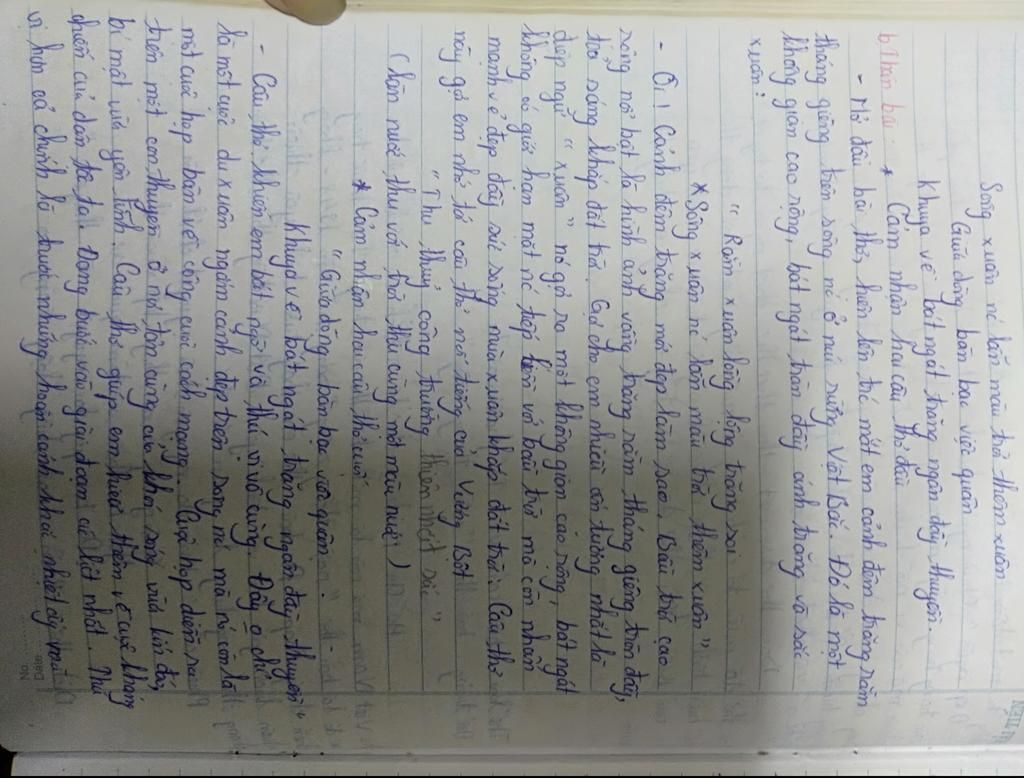 Sông xuân nước lẫn màu trời thêm xuân
Giữa dòng bàn bạc việc quân
Khuya về bát ngát trăng ngân đầy thuyền.
b. Thân bài: * Cảm nhận hai câu thơ đầu
- Mở đầu bài thơ, hiện lên trước mắt em cảnh đêm trăng rằm
tháng giêng trên sông nước ở núi rừng Việt Bắc. Đó là một
không gian cao rộng, bát ngát tràn đầy ánh trăng và sắc
xuân:
" Rằm xuân lồng lộng trăng soi
* Sông xuân nước lẫn màu trời thêm xuân "
- Ôi! Cảnh đêm trăng mới đẹp làm sao. Bầu trời cao
rộng nổi bật là hình ảnh vầng trăng rằm tháng giêng tròn đầy,
tỏa sáng khắp đất trời. Gợi cho em nhiều ấn tượng nhất là
điệp ngữ " xuân " nó gợi ra một không gian cao rộng, bát ngát
không có giới hạn mặt nước tiếp liền với bầu trời mà còn nhấn
mạnh vẻ đẹp đầy sức sống mùa xuân khắp đất trời. Câu thơ
này gợi em nhớ tới câu thơ nổi tiếng của Vương Bột
" Thu thủy cộng trường thiên nhất sắc "
( Làn nước thu với trời thu cùng một màu nước )
* Cảm nhận hai câu thơ cuối
" Giữa dòng bàn bạc việc quân
Khuya về bát ngát trăng ngân đầy thuyền "
- Câu thơ khiến em bất ngờ và thú vị vô cùng. Đây o chỉ
là một cuộc du xuân ngắm cảnh đẹp trên sông nước mà nó còn là
một cuộc họp bàn về công cuộc cách mạng. Cuộc họp diễn ra
trên một con thuyền ở nơi tận cùng của khói sóng vừa kín đáo,
bí mật vừa yên tĩnh. Câu thơ giúp em hiểu thêm về cuộc kháng
chiến của dân tộc ta. Đang bước vào giai đoạn ác liệt nhất. Như
vì hơn cả chính là trước những hoàn cảnh